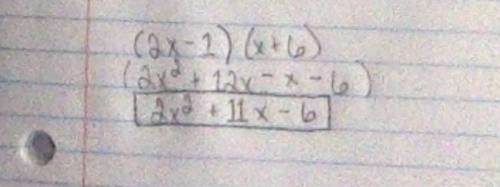 (2x - 1) (x + 6)
(2x² + 12x - x - 6)
2x² + 11x - 6